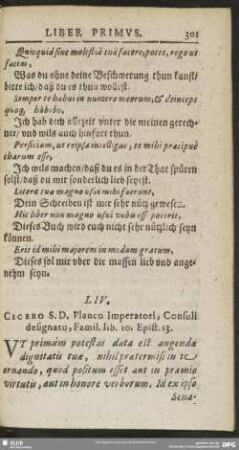 LIBER PRIMUS. 301
Quicquid sine molestia tua facere potes, rogo ut
facias,
Was du ohne deine Beschwerung thun kanst/
bitte ich/ daß du es thun wollest.
Semper te habui in numero meorum, & deinceps
quoq; habebo,
Ich hab dich allezeit unter die meinen gerech-
net/ und wils auch hinfort thun.
Perficiam, ut reipsa intelligas, te mihi præcipuè
charum esse,
Ich wils machen/ daß du es in der That spüren
solst/ daß du mir sonderlich lieb seyst.
Literæ tuæ magno usui mihi fuerunt,
Dein Schreiben ist mir sehr nütz gewesen.
Hic liber non magno usui vobis esse poterit,
Dieses Buch wird euch nicht sehr nützlich seyn
können.
Erit id mihi majorem in modum gratum,
Dieses sol mir uber die massen lieb und ange-
nehm seyn.
LIV.
CICERO S. D. Planco Imperatori, Consuli
designato, Famil. lib. 10. Epist. 13.
UT primùm potestas data est augendæ
dignitatis tuæ, nihil prætermisi in te
ornando, quod positum esset aut in præmio
virtutis, aut in honore verborum. Id ex ipso
Sena-
SLUB